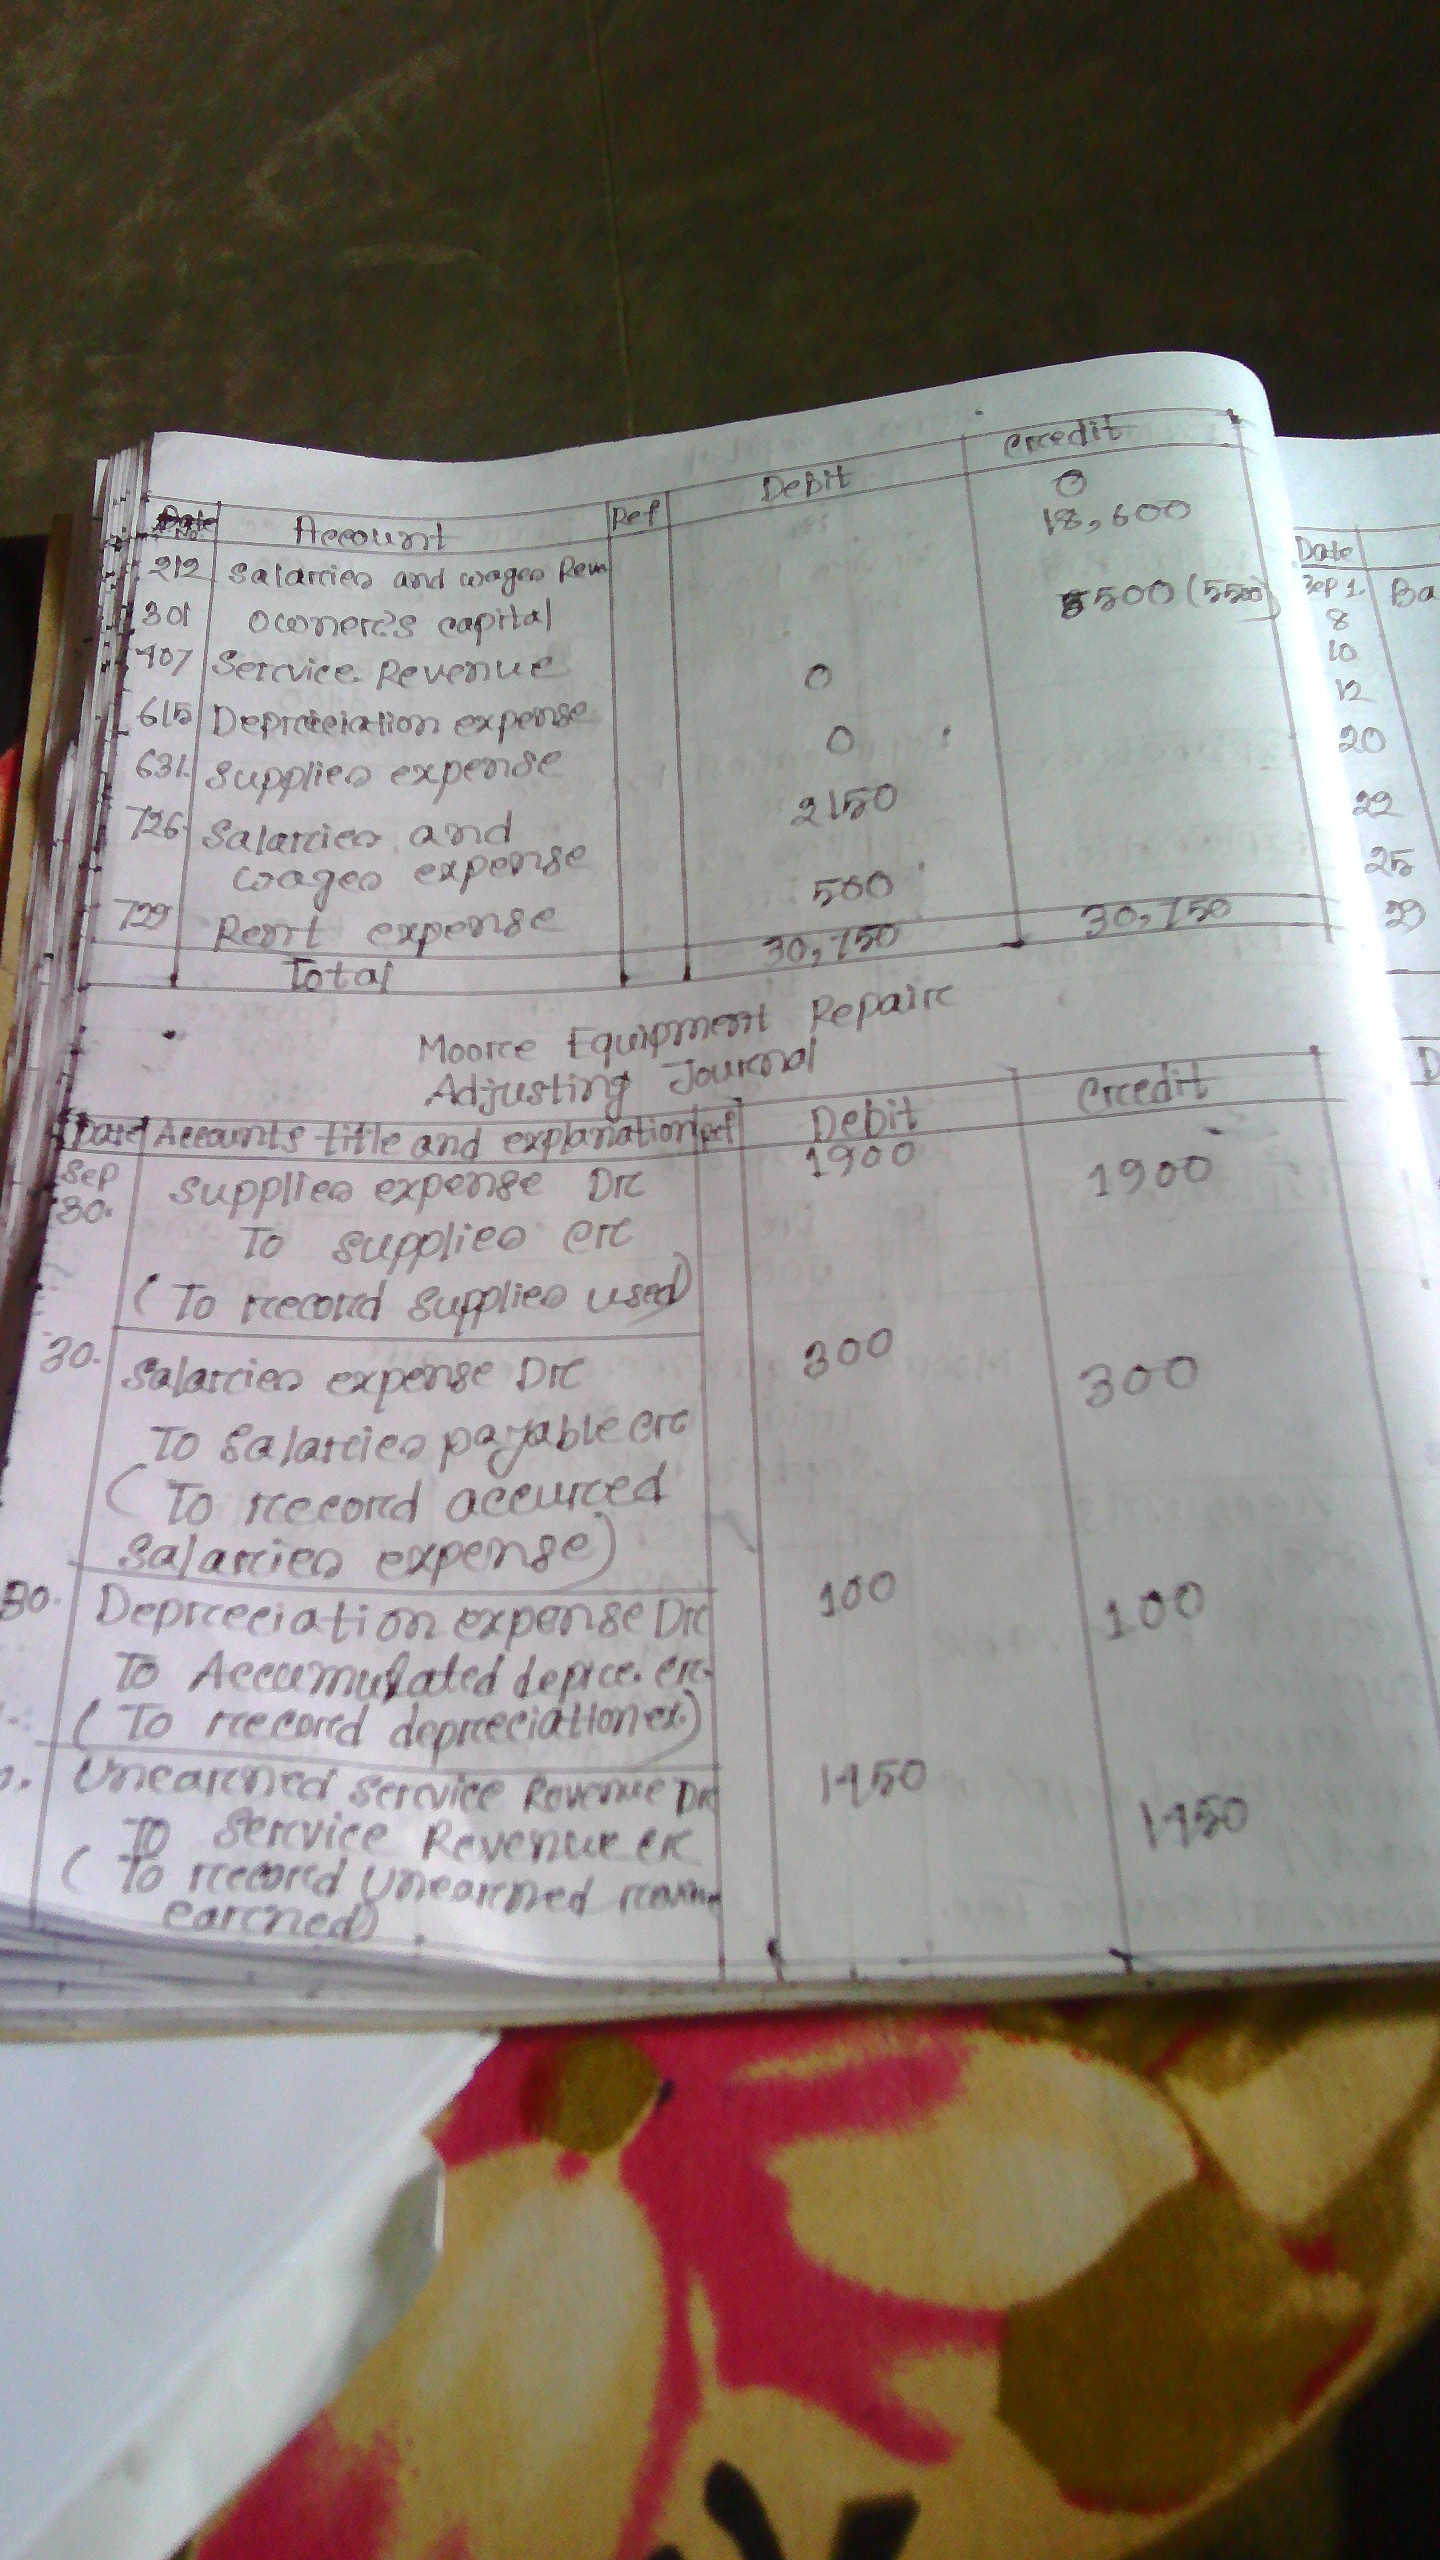 Date No. Account Ref Debit Credit
212 Salaries and wages 0
301 Owner's capital 18,600
407 Service Revenue 5500 (5500)
615 Depreciation expense 0
631 Supplies expense 0
726 Salaries and
wages expense 2150
729 Rent expense 500
Total 30,750 30,750
Moore Equipment Repair
Adjusting Journal
Date Accounts title and explanation Ref Debit Credit
Sep Supplies expense Dr 1900 1900
30. To supplies cr
(To record supplies used)
30. Salaries expense Dr 300 300
To Salaries payable cr
(To record accured
Salaries expense)
30. Depreciation expense Dr 100 100
To Accumulated depre. cr.
(To record depreciation ex.)
Unearned service Revenue Dr 1450
To Service Revenue cr 1450
(To record Unearned
earned)
Date
Sep 1. Ba
8
10
12
20
22
25
29
D